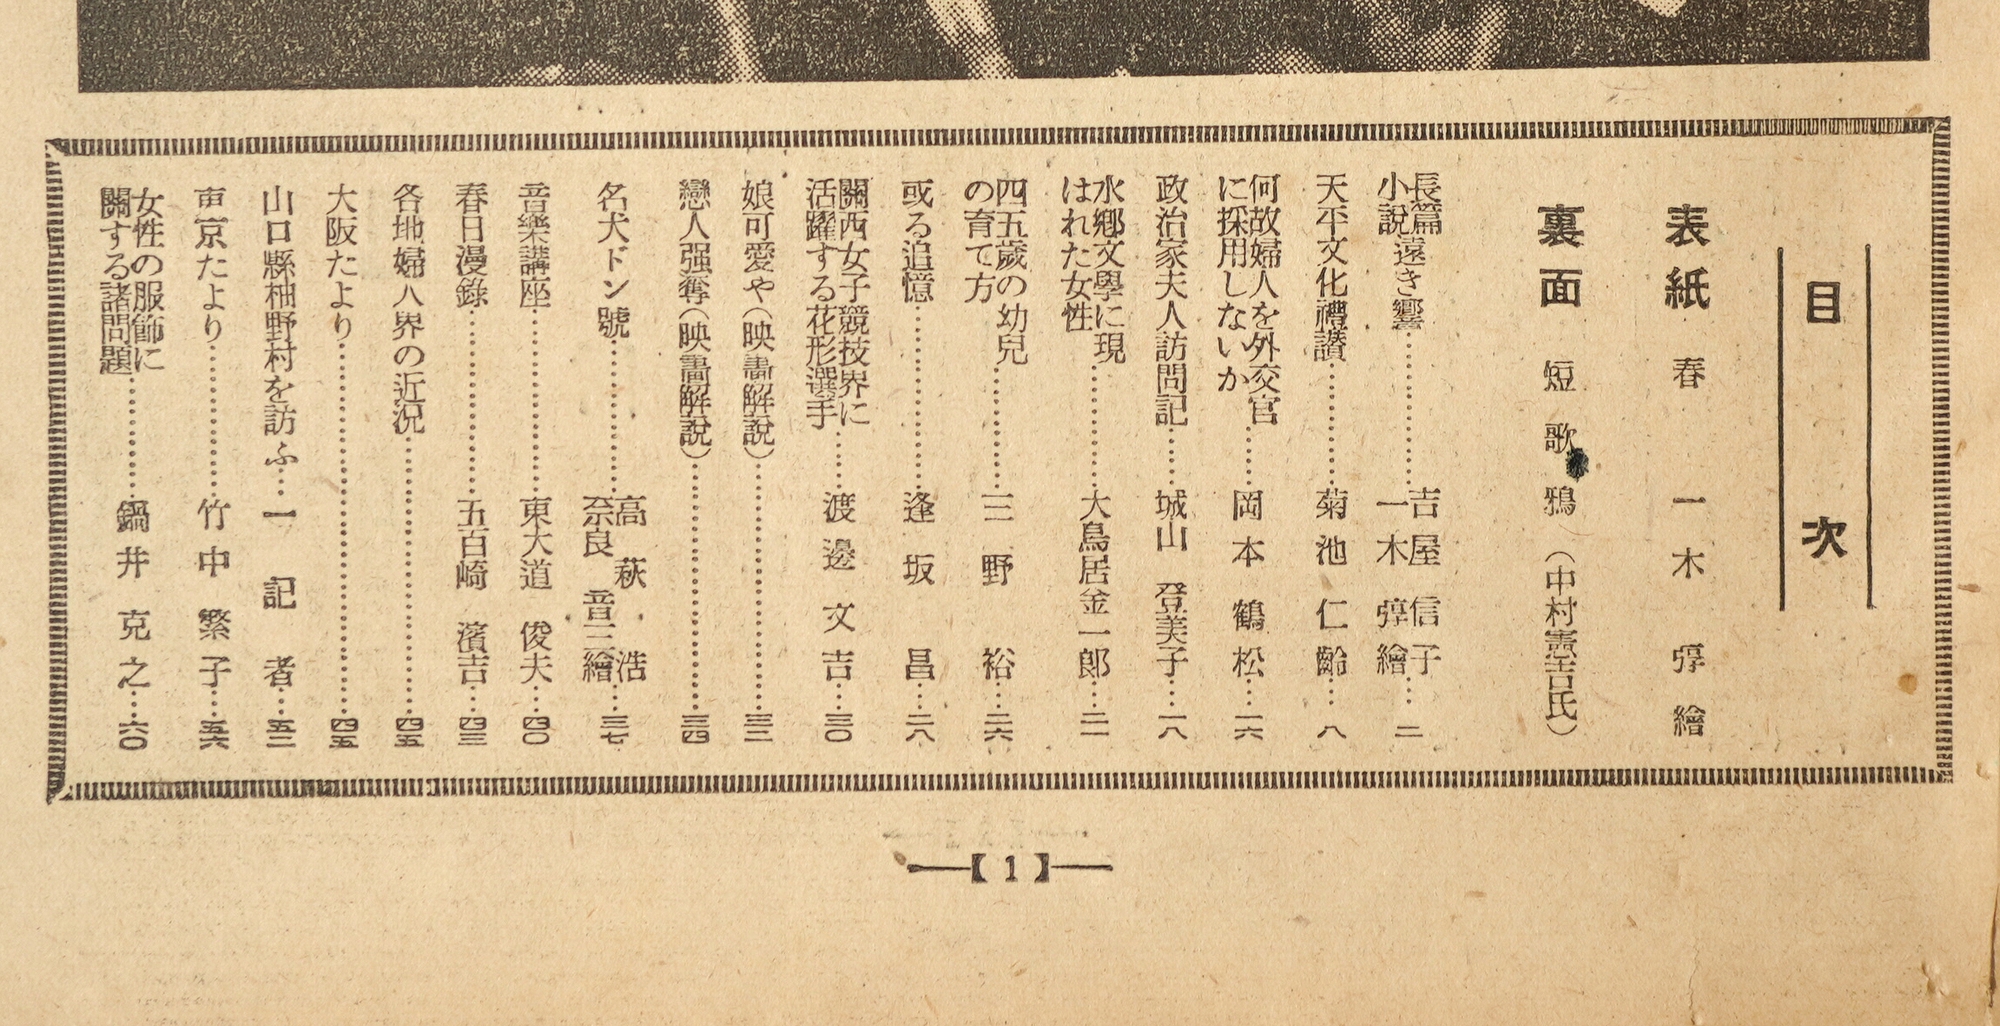 目次
表紙 春 一木弴繪
裏面 短歌 鴉 (中村憲吉氏)
長篇小說 遠き響……吉屋信子 一木弴繪……二
天平文化禮讃……菊池仁齡……八
何故婦人を外交官に採用しないか……岡本鶴松……一六
政治家夫人訪問記……城山登美子……一八
水鄕文學に現はれた女性……大鳥居金一郎……二一
四五歲の幼兒の育て方……三野裕……二六
或る追憶……逢坂昌……二八
關西女子競技界に活躍する花形選手……渡邊文吉……三〇
娘可愛や(映畵解說)……三二
戀人强奪(映畵解說)……三四
名犬ドン號……高萩浩 奈良音三繪……三七
音樂講座……東大道俊夫……四〇
春日漫錄……五百崎濱吉……四三
各地婦人界の近況……四五
大阪たより……四五
山口縣柚野村を訪ふ……一記者……五二
東京たより……竹中繁子……五六
女性の服飾に關する諸問題……鍋井克之……六〇
【1】